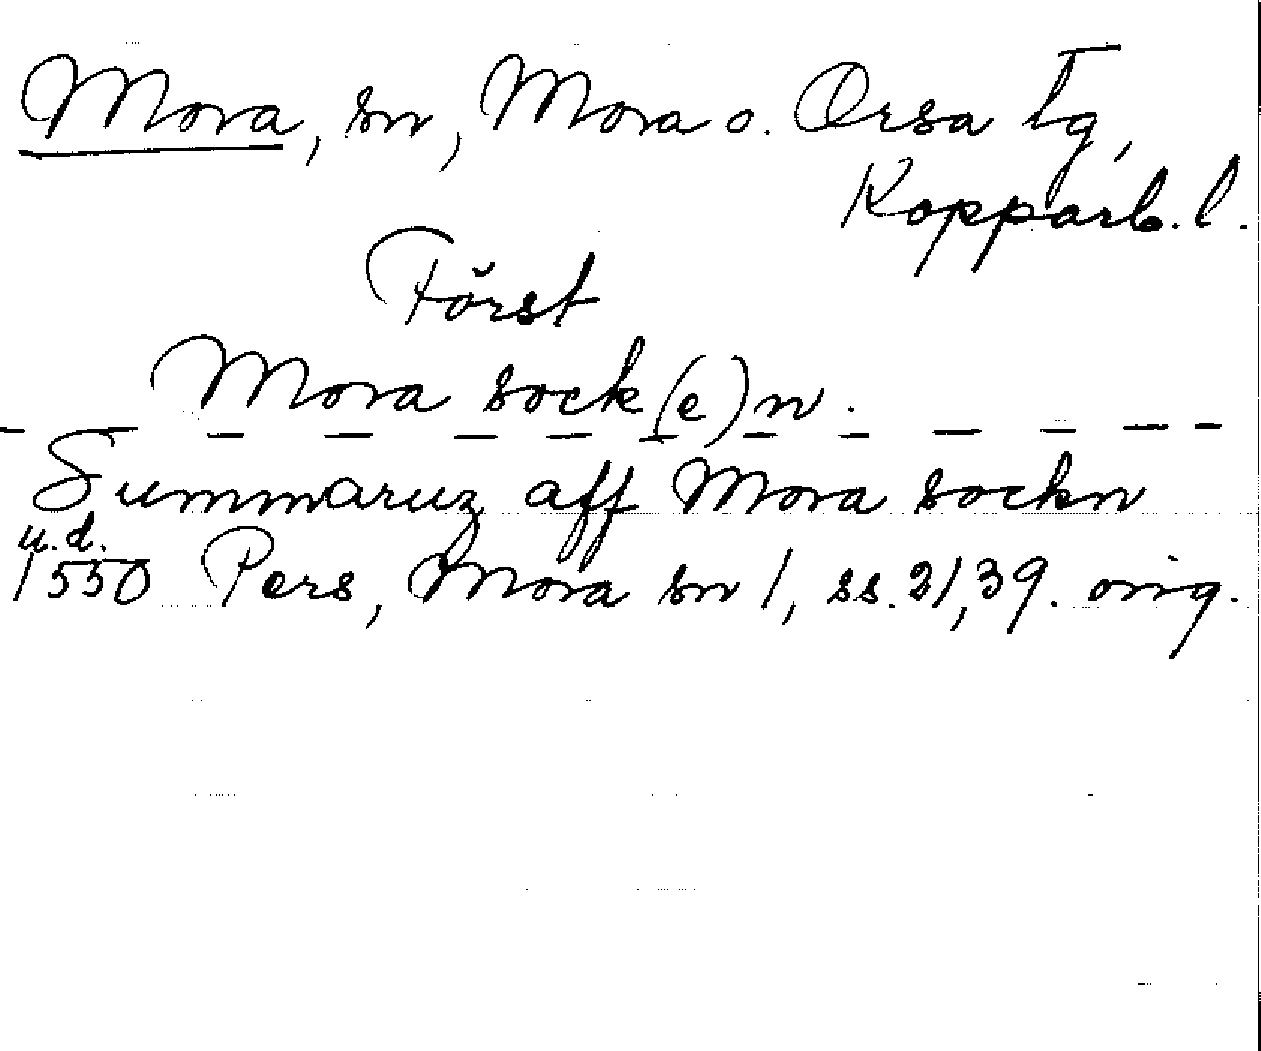 Mora, sn, Mora o. Orsa tg,
Kopparb. l.
Först
Mora sock(e)n.
— — — — — — — — — — — —
Summaruz aff Mora sockn
u.d.
1550 Pers, Mora sn 1, ss. 21, 39. orig.